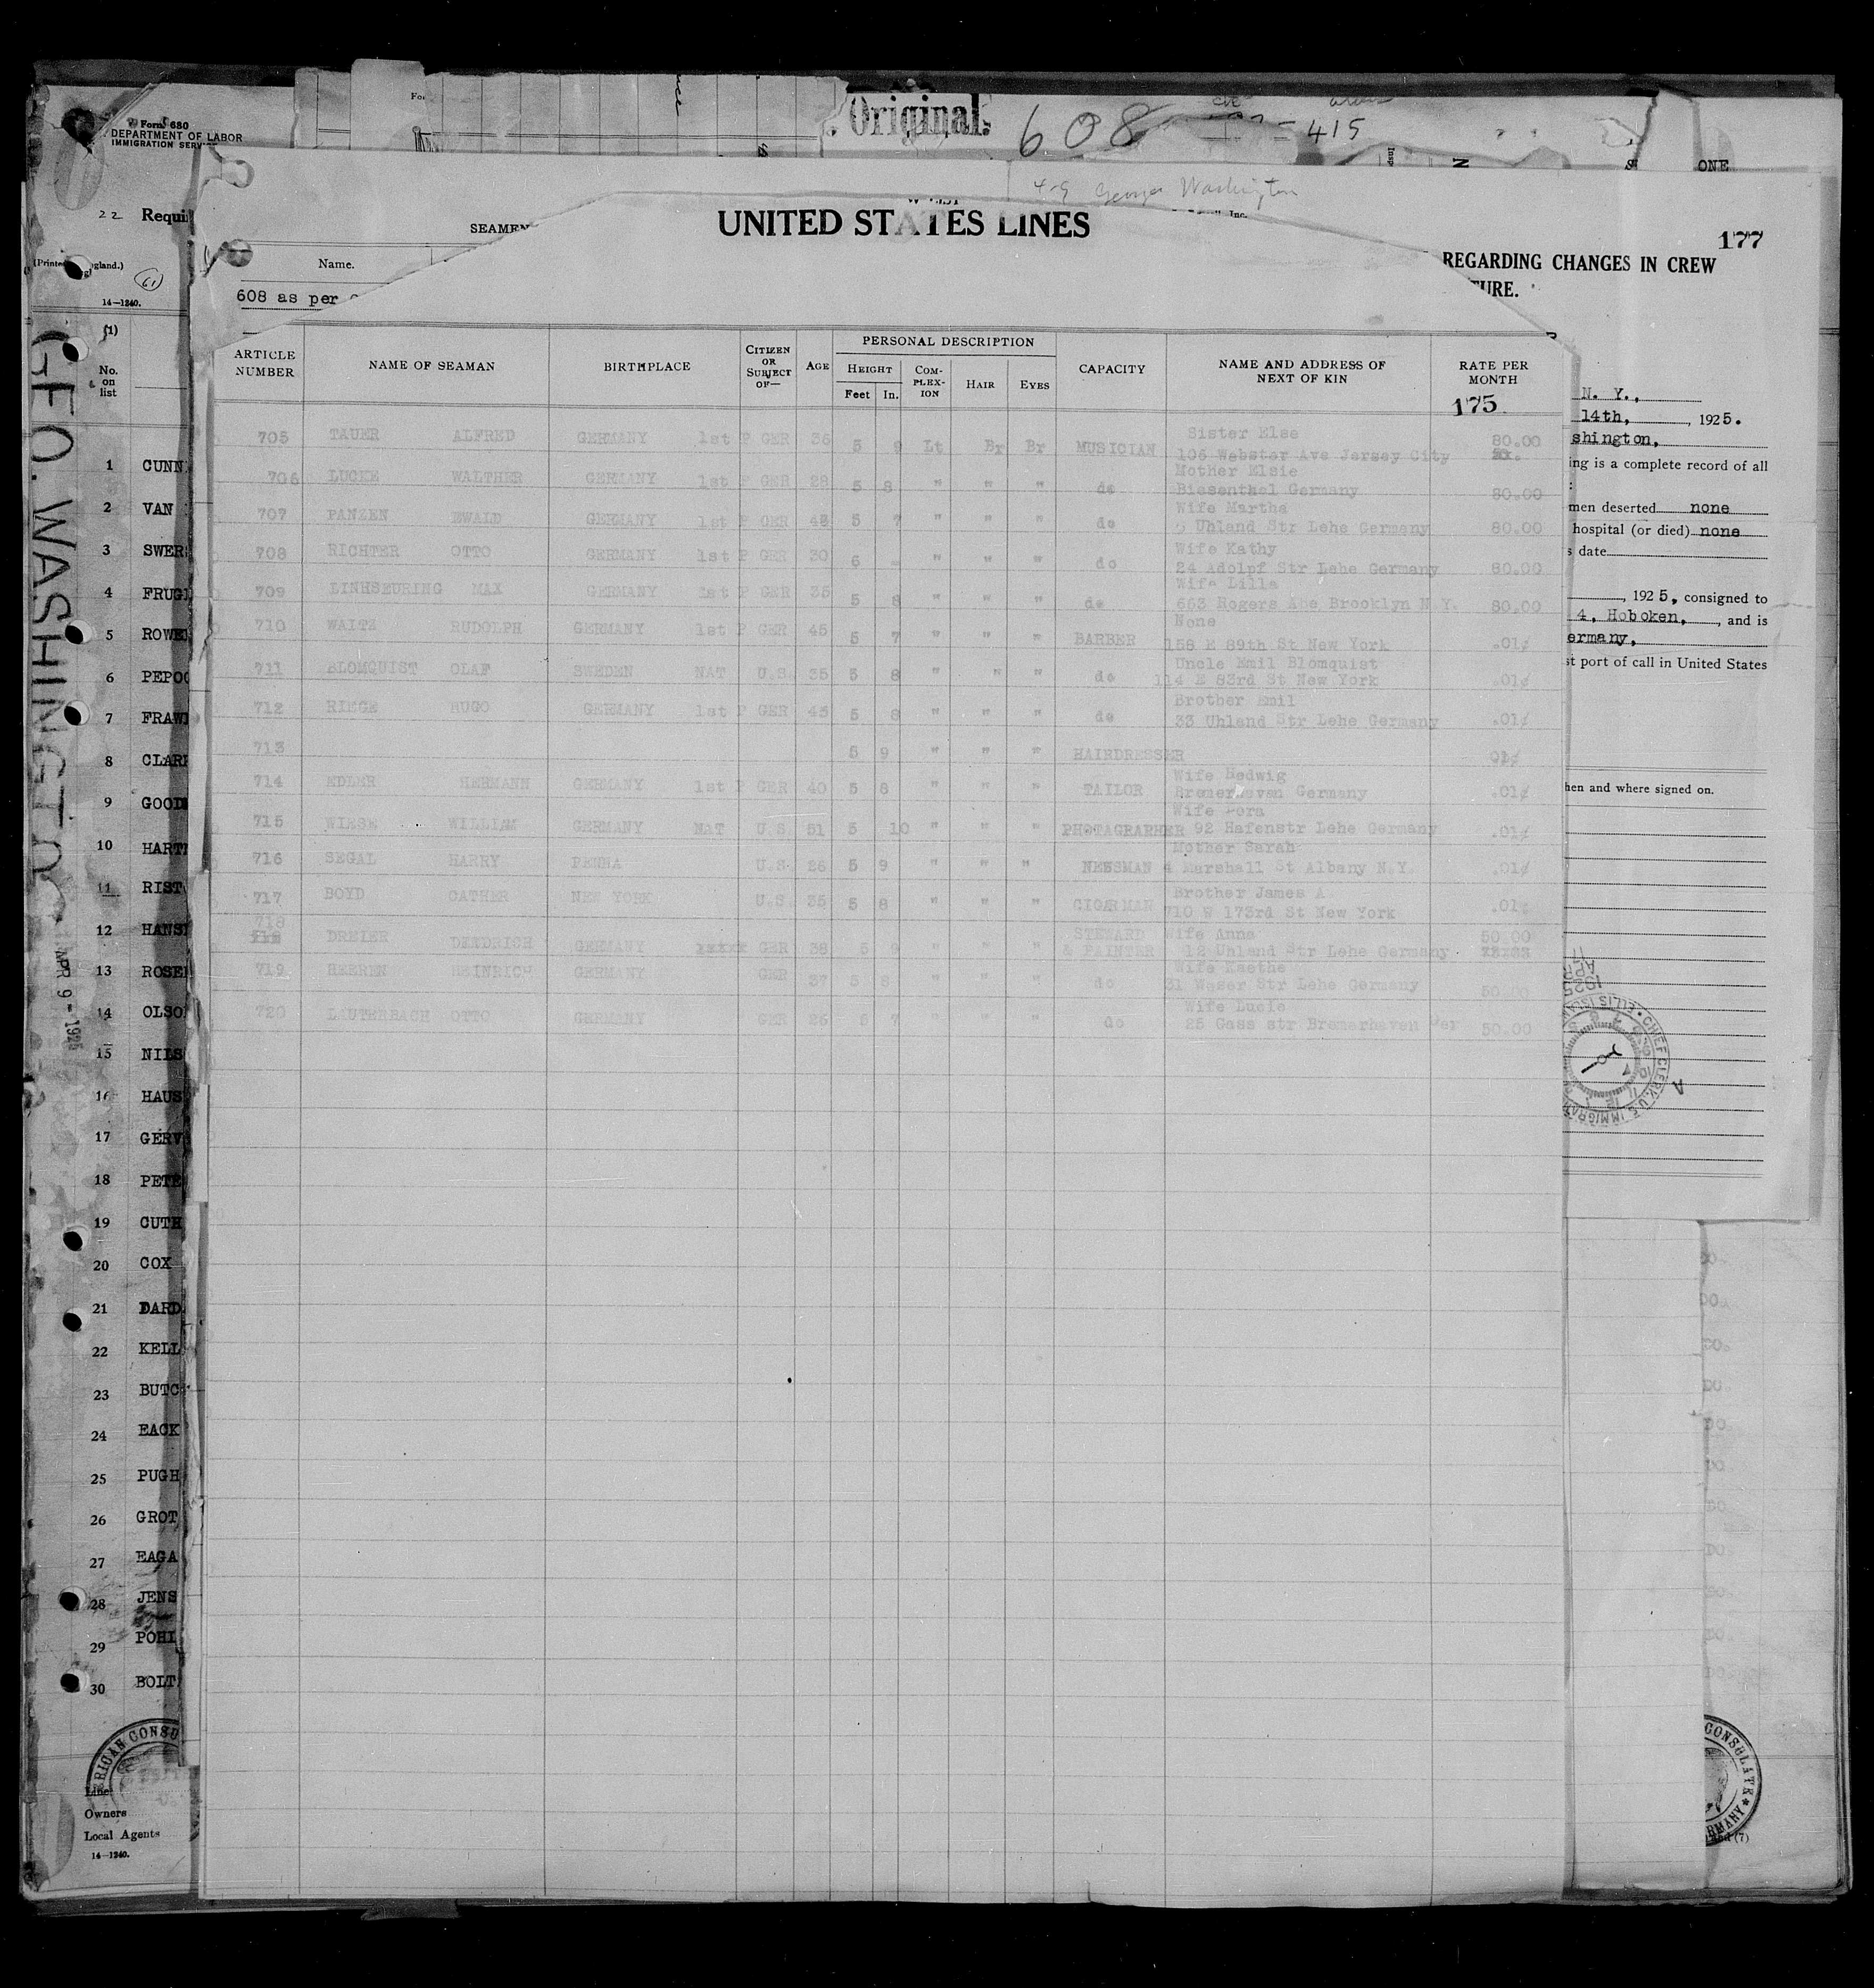 Form 680
DEPARTMENT OF LABOR
IMMIGRATION SERV
Original.
608
415
ONE
22
Requi
4-9 George Washington
SEAMEN
UNITED STATES LINES
Inc.
177
REGARDING CHANGES IN CREW
TURE.
Name.
608 as per
61
14-1240.
(1)
No.
on
list
GEO. WASHINGTON
APR 9 - 1925
1 CUNN
2 VAN
3 SWER
4 FRUG
5 ROWE
6 PEPO
7 FRAW
8 CLAR
9 GOOD
10 HART
11 RIST
12 HANS
13 ROSE
14 OLSO
15 NILS
16 HAUS
17 GERV
18 PETE
19 CUTH
20 COX
21 DARD
22 KELL
23 BUTC
24 EACK
25 PUGH
26 GROT
27 EAGA
28 JENS
29 POHL
30 BOLT
RICAN CONSU
Line
Owners
Local Agents
14-1240.
ARTICLE NUMBER NAME OF SEAMAN BIRTHPLACE CITIZEN OR SUBJECT OF— AGE PERSONAL DESCRIPTION HEIGHT Feet In. COM-PLEX-ION HAIR EYES CAPACITY NAME AND ADDRESS OF NEXT OF KIN RATE PER MONTH
175
705 TAUER ALFRED GERMANY 1st P GER 36 5 9 Lt Br Br MUSICIAN Sister Else 80.00
106 Webster Ave Jersey City
706 LUCKE WALTHER GERMANY 1st P GER 28 5 8 " " " do Mother Elsie
Biesenthal Germany 80.00
707 PANZEN EWALD GERMANY 1st P GER 48 5 7 " " " do Wife Martha
5 Uhland Str Lehe Germany 80.00
708 RICHTER OTTO GERMANY 1st P GER 30 6 - " " " do Wife Kathy
24 Adolpf Str Lehe Germany 80.00
709 LINHSEURING MAX GERMANY 1st P GER 35 5 8 " " " do Wife Lilla
663 Rogers Abe Brooklyn N Y. 80.00
710 WAITZ RUDOLPH GERMANY 1st P GER 45 5 7 " " " BARBER None
158 E 89th St New York .01¢
711 BLOMQUIST OLAF SWEDEN NAT U.S. 35 5 8 " " " do Uncle Emil Blomquist
114 E 83rd St New York .01¢
712 RIEGE HUGO GERMANY 1st P GER 45 5 8 " " " do Brother Emil
33 Uhland Str Lehe Germany .01¢
713 5 9 " " " HAIRDRESSER 01¢
714 EDLER HERMANN GERMANY 1st P GER 40 5 8 " " " TAILOR Wife Hedwig
Bremerhaven Germany .01¢
715 WIESE WILLIAM GERMANY NAT U.S. 51 5 10 " " " PHOTAGRAPHER Wife Dora
92 Hafenstr Lehe Germany .01¢
716 SEGAL HARRY PENNA U.S. 26 5 9 " " " NEWSMAN Mother Sarah
4 Marshall St Albany N.Y. .01¢
717 BOYD CATHER NEW YORK U.S. 35 5 8 " " " CIGARMAN Brother James A
710 W 173rd St New York .01¢
718 DREIER DEIDRICH GERMANY GER 38 5 9 " " " STEWARD & PAINTER Wife Anna 50.00
12 Uhland Str Lehe Germany
719 HEEREN HEINRICH GERMANY GER 37 5 8 " " " do Wife Kaethe
31 Weser Str Lehe Germany 50.00
720 LAUTERBACH OTTO GERMANY GER 26 5 7 " " do Wife Lucie
25 Gass str Bremerhaven Ger 50.00
N. Y.,
14th, , 1925.
shington,
ing is a complete record of all
men deserted none
hospital (or died) none
s date
, 1925, consigned to
4, Hoboken, , and is
ermany,
st port of call in United States
hen and where signed on.
CHIEF CLERK, U.S. IMMIGRA
ELLIS ISLAN
1925 APR 17
CONSULATE
RMANY
(7)